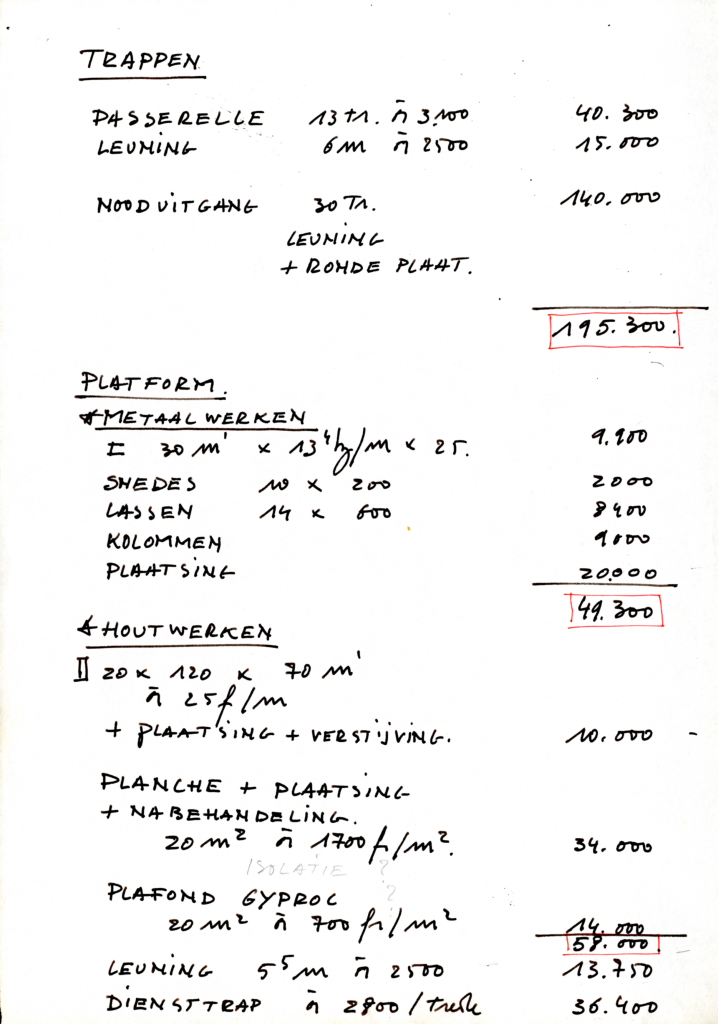 TRAPPEN
PASSERELLE 13 tr. à 3.100 40.300
LEUNING 6m à 2500 15.000
NOODUITGANG 30 Tr. 140.000
LEUNING
+ RONDE PLAAT.
195.300.
PLATFORM.
METAALWERKEN
I 30 m' x 13⁴ kg/m x 25.
SNEDES 10 x 200 2000
LASSEN 14 x 600 8400
KOLOMMEN 9000
PLAATSING 20.000
49.300
HOUTWERKEN
20 x 120 x 70 m'
à 25 f/m
+ PLAATSING + VERSTIJVING. 10.000
PLANCHE + PLAATSING
+ NABEHANDELING.
20 m² à 1700 fr/m². 34.000
ISOLATIE ?
PLAFOND GYPROC ?
20 m² à 700 fr/m² 14.000
58.000
LEUNING 5⁵ m à 2500 13.750
DIENSTTRAP à 2800 / 36.400